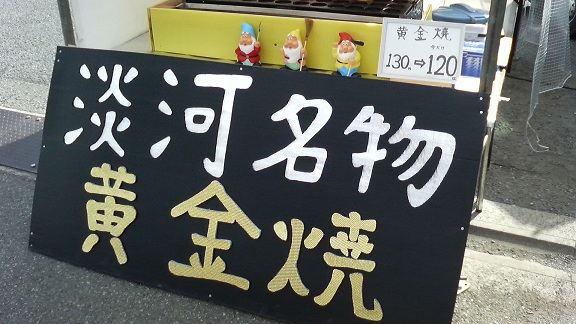 黄金焼
今だけ
130円⇨120円
淡河名物
黄金焼